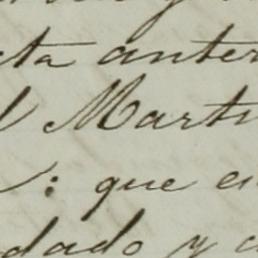 cta anter
Marti
: que en
dado y